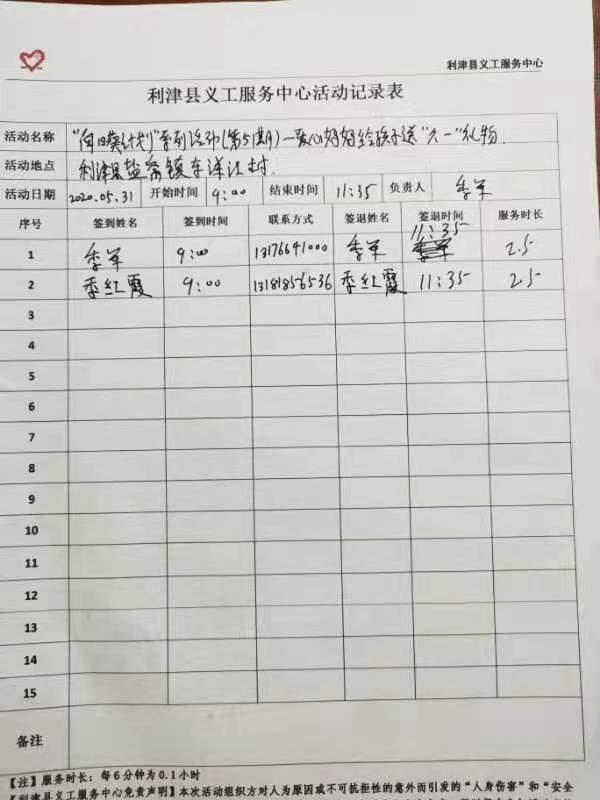 利津县义工服务中心
利津县义工服务中心活动记录表
活动名称 "向日葵计划"系列活动(第51期)一爱心妈妈给孩子送"六一"礼物.
活动地点 利津县盐窝镇东洋江村.
活动日期 2020.05.31 开始时间 9:00 结束时间 11:35 负责人 季军
序号 签到姓名 签到时间 联系方式 签退姓名 签退时间 服务时长
1 季军 9:00 13176641000 季军 11:35 2.5
2 季红霞 9:00 13181856536 季红霞 11:35 2.5
3
4
5
6
7
8
9
10
11
12
13
14
15
备注
【注】服务时长：每6分钟为0.1小时
【利津县义工服务中心免责声明】本次活动组织方对人为原因或不可抗拒性的意外而引发的"人身伤害"和"安全